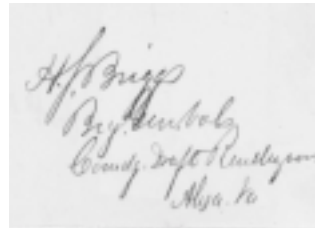 H. S. Briggs
Brig. Gen. Vols
Comdg. Draft Rendezvous
Alexa. Va